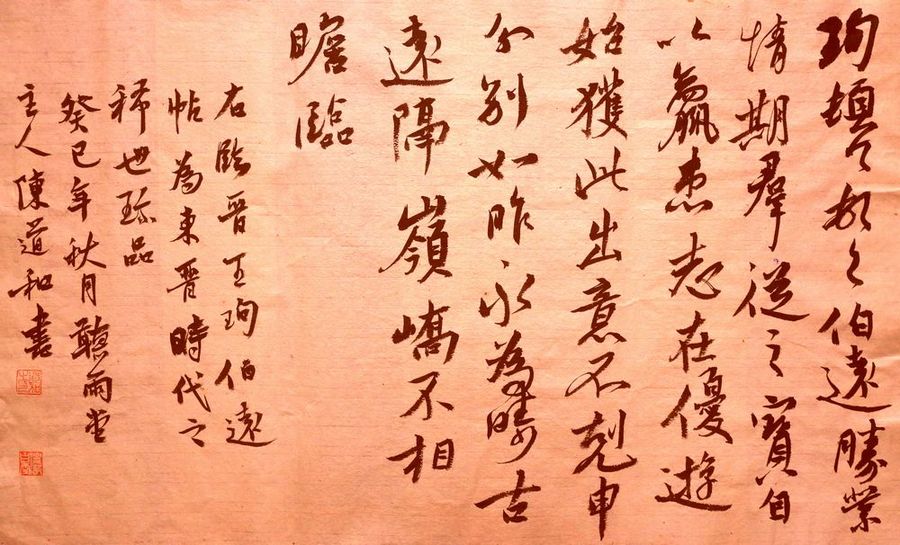 珣頓首頓首伯遠勝業
情期羣從之寶自
以羸患志在優遊
始獲此出意不剋申
分別如昨永為疇古
遠隔嶺嶠不相
瞻臨
右臨晉王珣伯遠
帖為東晉時代之
稀世珎品
癸巳年秋月聽雨堂
主人陳道和書